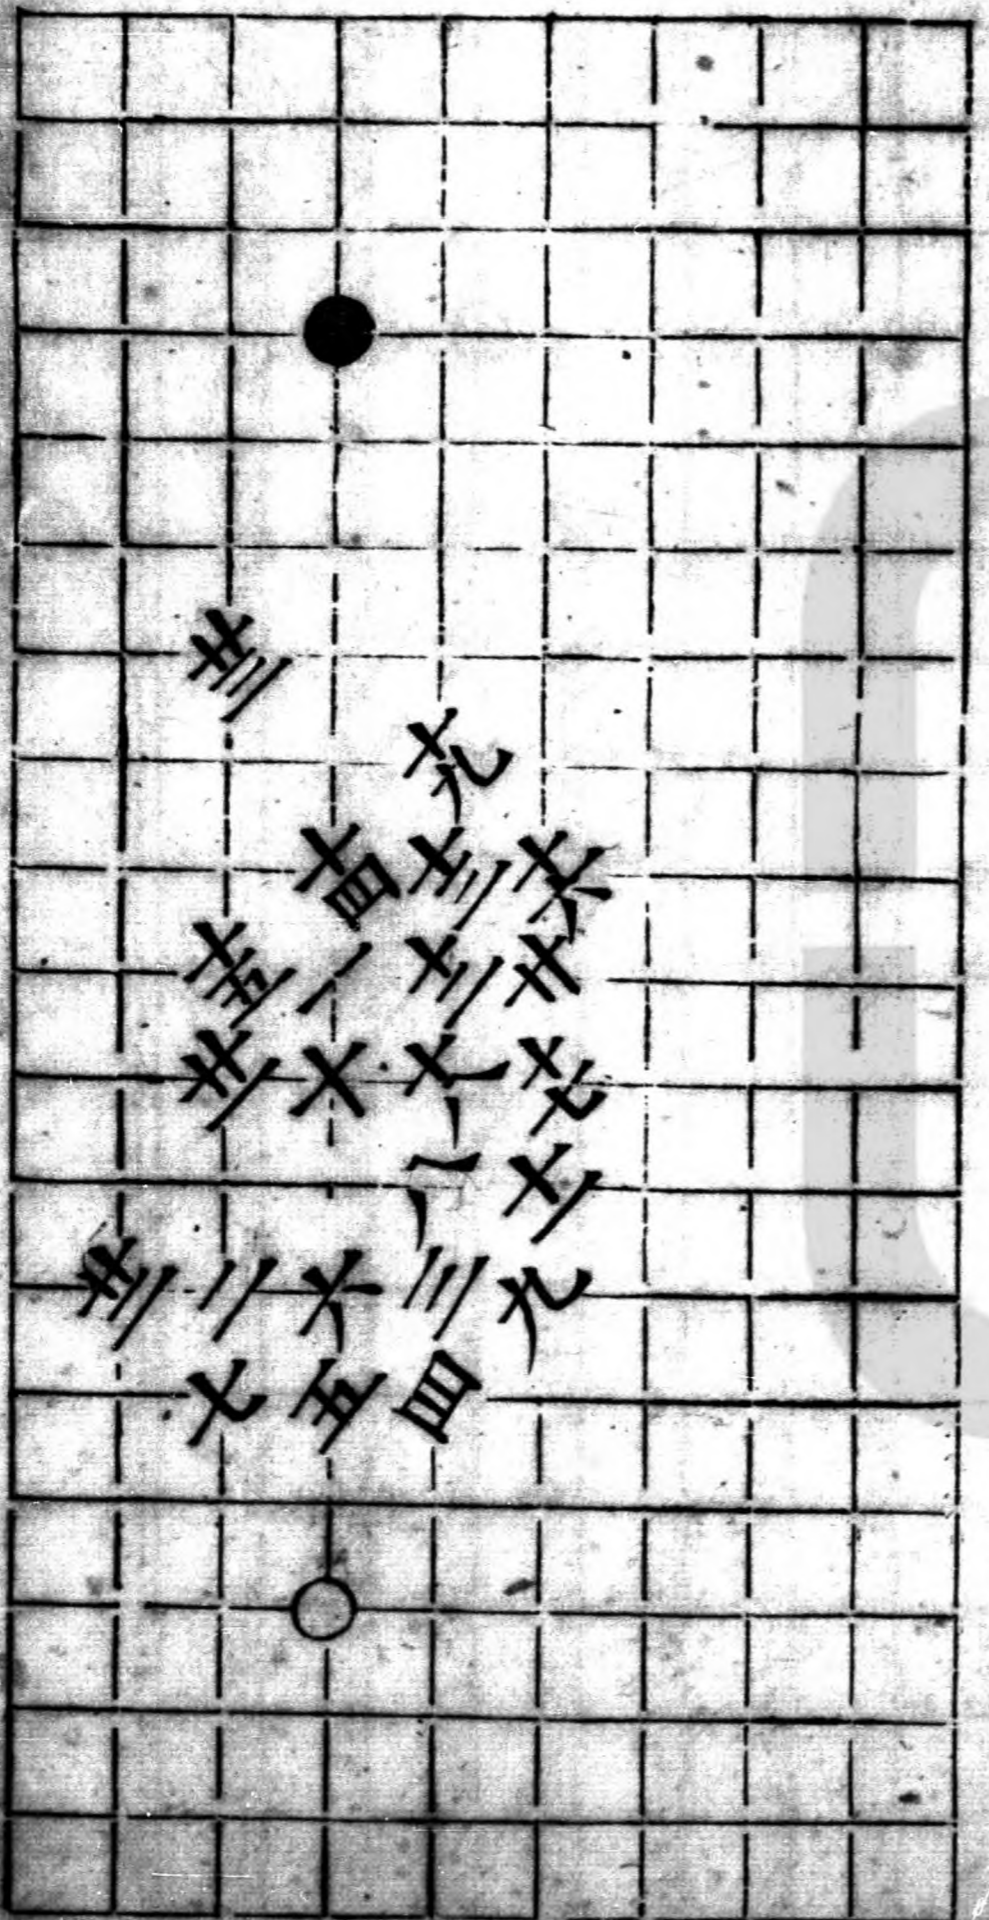 廿三
十九
十四 十三 十六
十五 一 十二 廿
廿一 十 十八 十七
八 十一
廿二 二 六 三 九
七 五 四